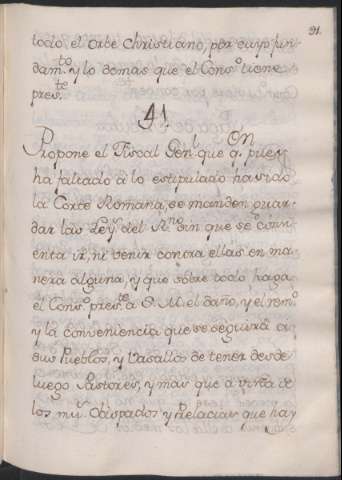 91.
todo el orbe christiano, por cuyo fun-
dam.to y lo demas que el Cons.o tiene
pres.te
41
Propone el Fiscal Gen.l que q.n pues
ha faltado a lo estipulado ha sido
la Corte Romana, se manden guar-
dar las Ley.s del R.no sin que se consi-
enta ir, ni venir contra ellas en ma-
nera alguna, y que sobre todo haga
el Cons.o pres.te a S. M. el daño, y el rem.o
y la conveniencia que se seguirá a
sus Pueblos, y Vasallos de tener desde
luego Pastores, y mas que a vista de
los mu.s Obispados y Prelacias que hay